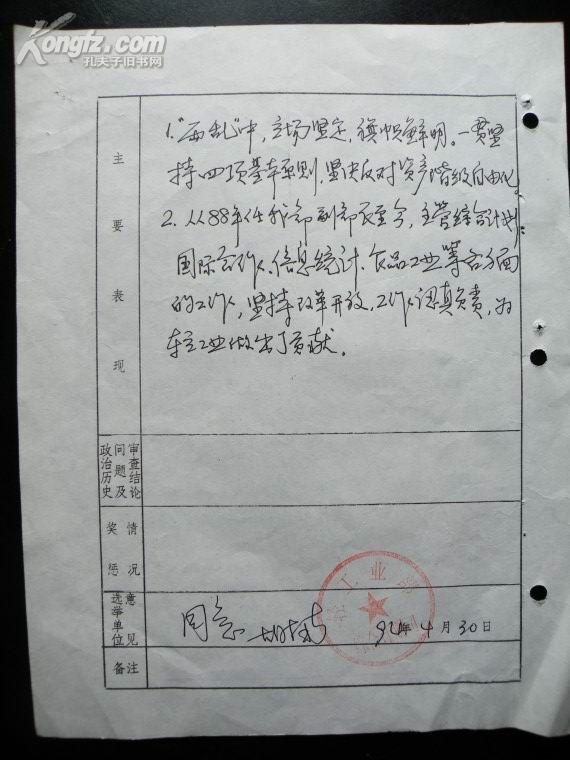 Kongfz.com
孔夫子旧书网
主要表现
1."两乱"中，立场坚定，旗帜鲜明。一贯坚
持四项基本原则，坚决反对资产阶级自由化
2. 从88年任我部副部长至今，主管综合计划
国际合作、信息统计、食品工业等各方面
的工作，坚持改革开放，工作认真负责，为
轻工业做出了贡献。
政治历史问题及审查结论
奖惩情况
选举单位意见
同意
92年4月30日
备注
工业部